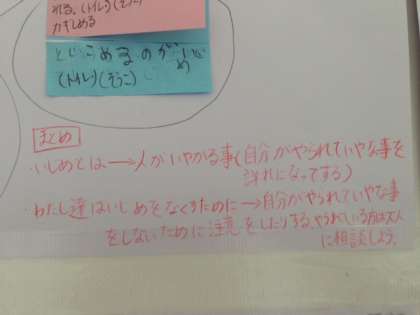 れる。(トイレ)(そうこ)
カギしめる
とじこめるのがいじめ
(トイレ)(そうこ)
まとめ
・いじめとは→人がいやがる事(自分がやられていやな事を
誰かになってする)
わたし達はいじめをなくすために→自分がやられていやな事
をしないために注意をしたりする。やられている方は大人
に相談しよう。